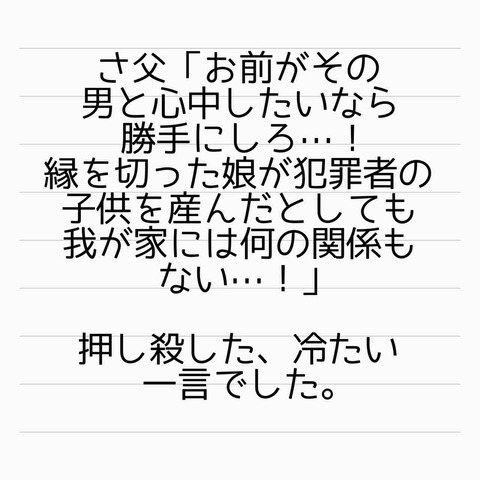 さ父「お前がその
男と心中したいなら
勝手にしろ…！
縁を切った娘が犯罪者の
子供を産んだとしても
我が家には何の関係も
ない…！」
押し殺した、冷たい
一言でした。